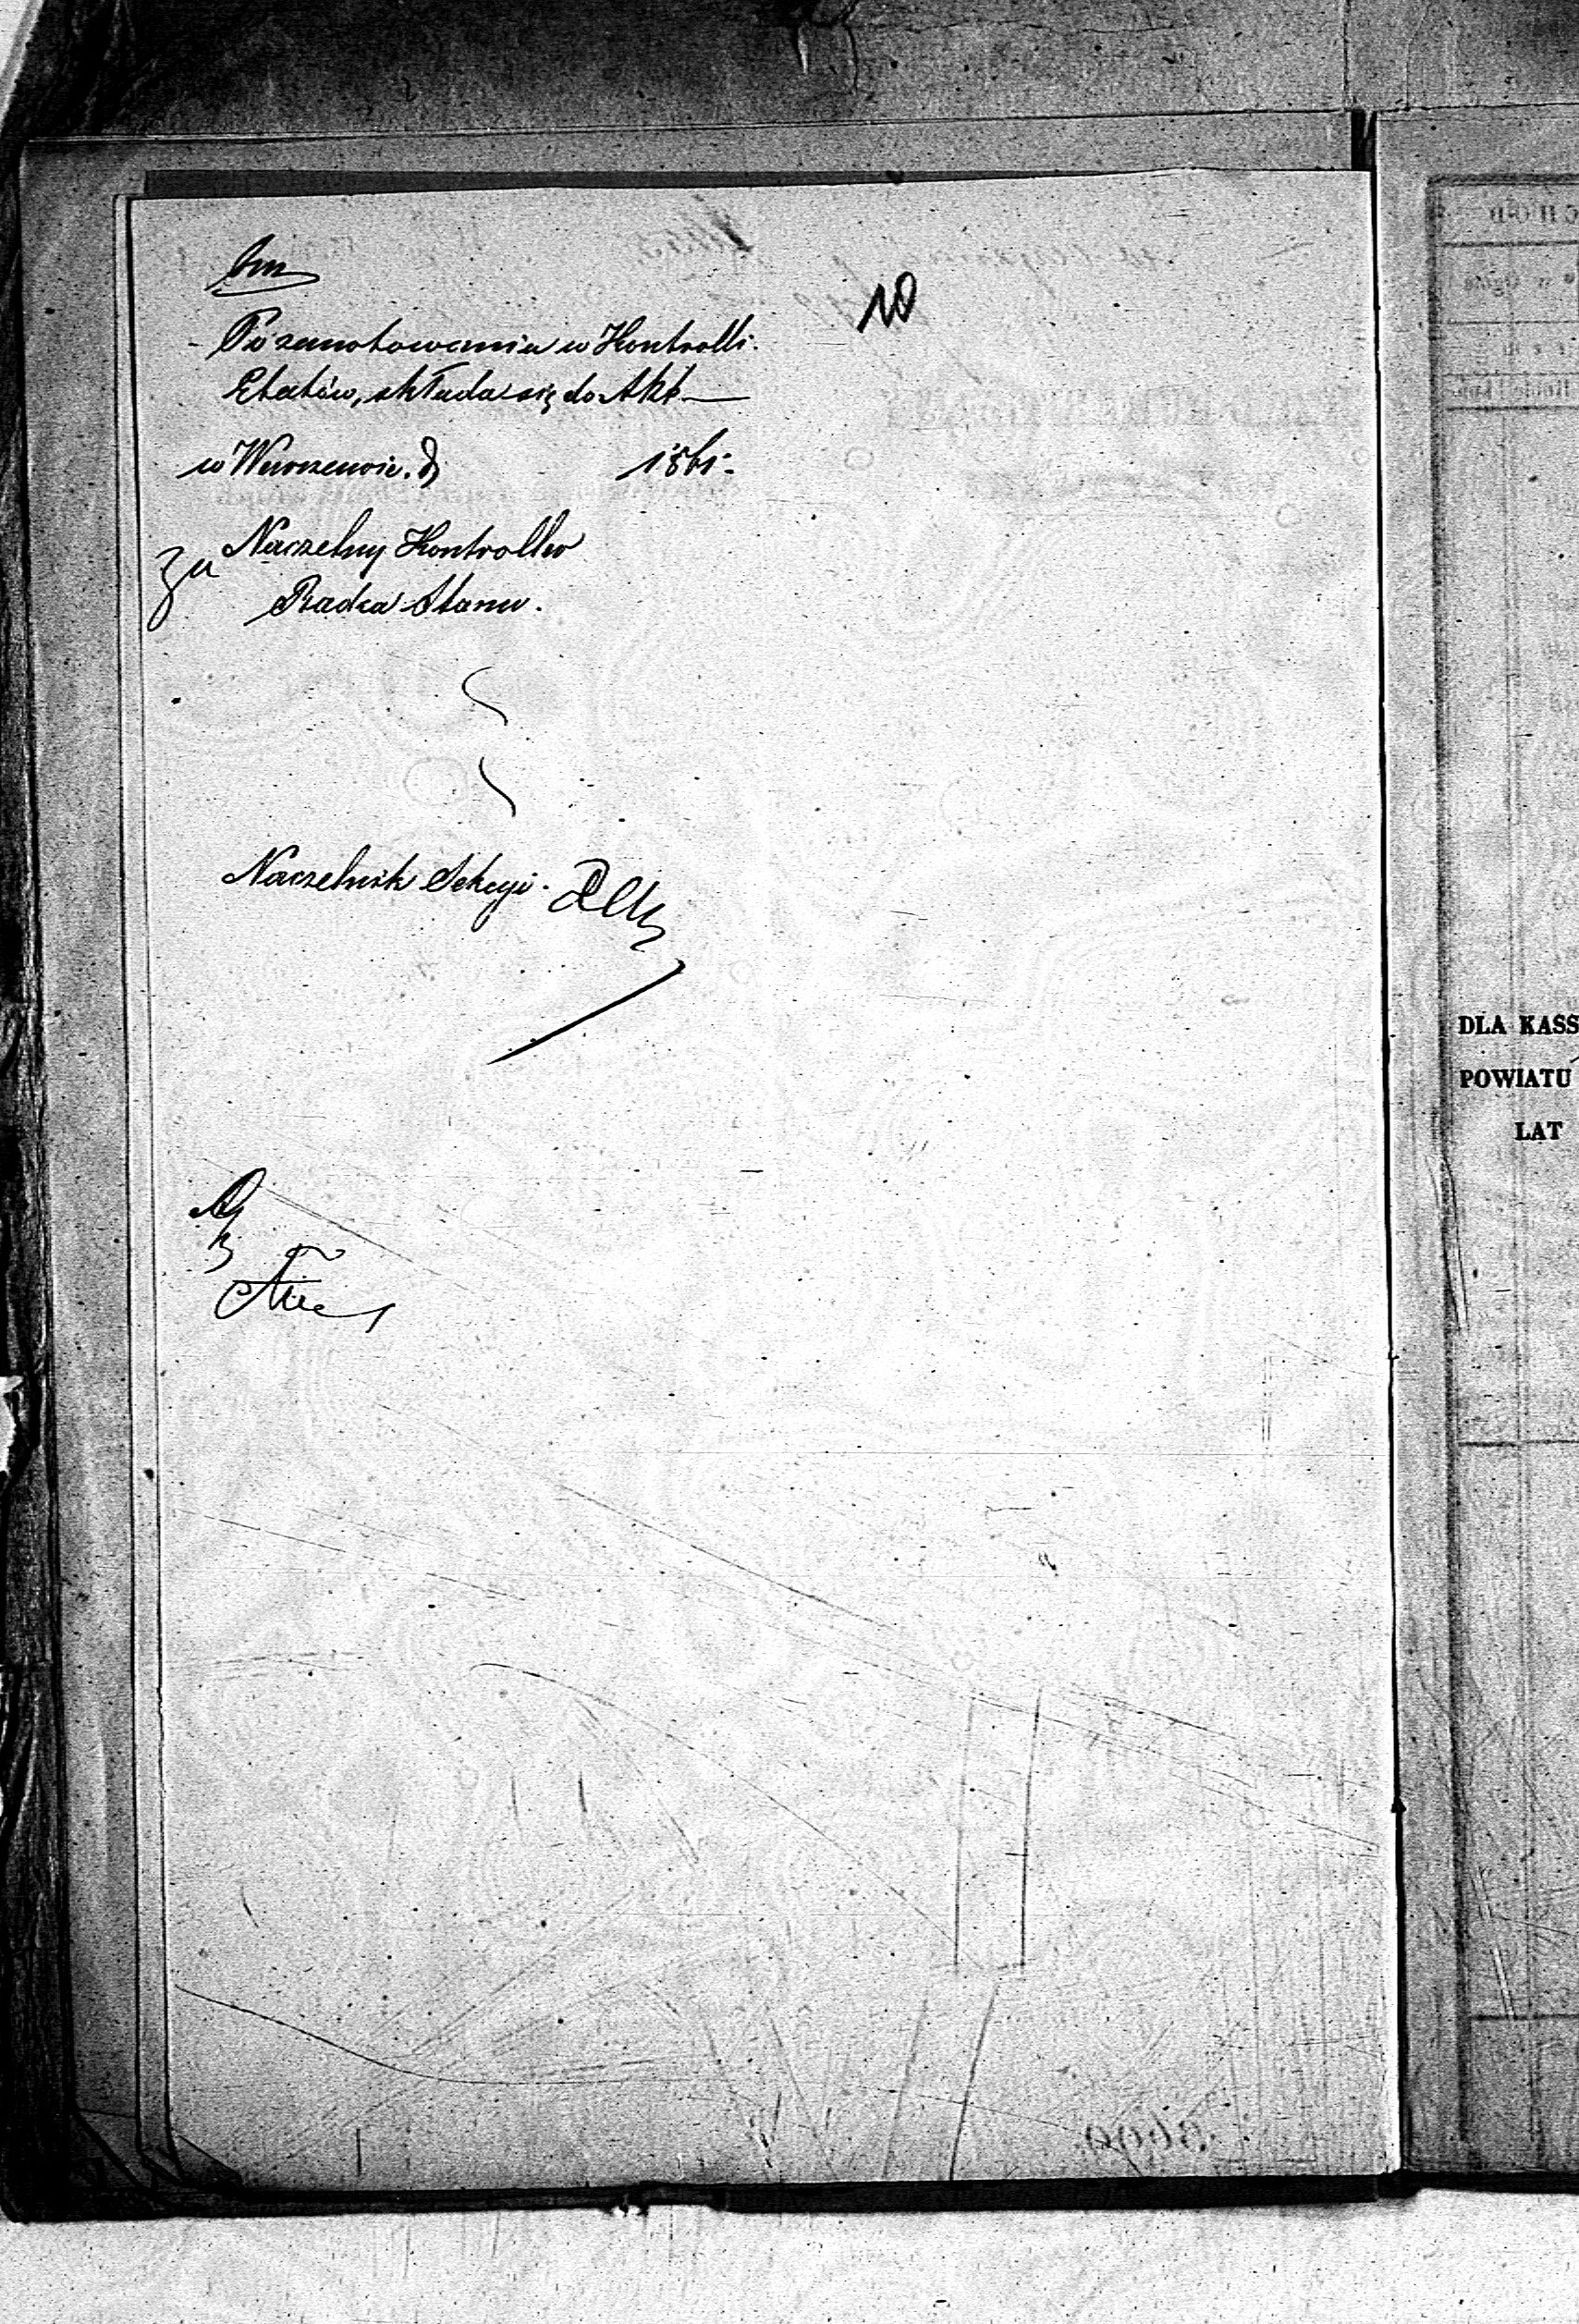 10
Po zanotowaniu w Kontrolli
Etatów, składa się do Akt
w Warszawie d. 1861.
za Naczelny Kontroller
Radca Stanu.
Naczelnik Sekcyi.
DLA KASS
POWIATU
LAT